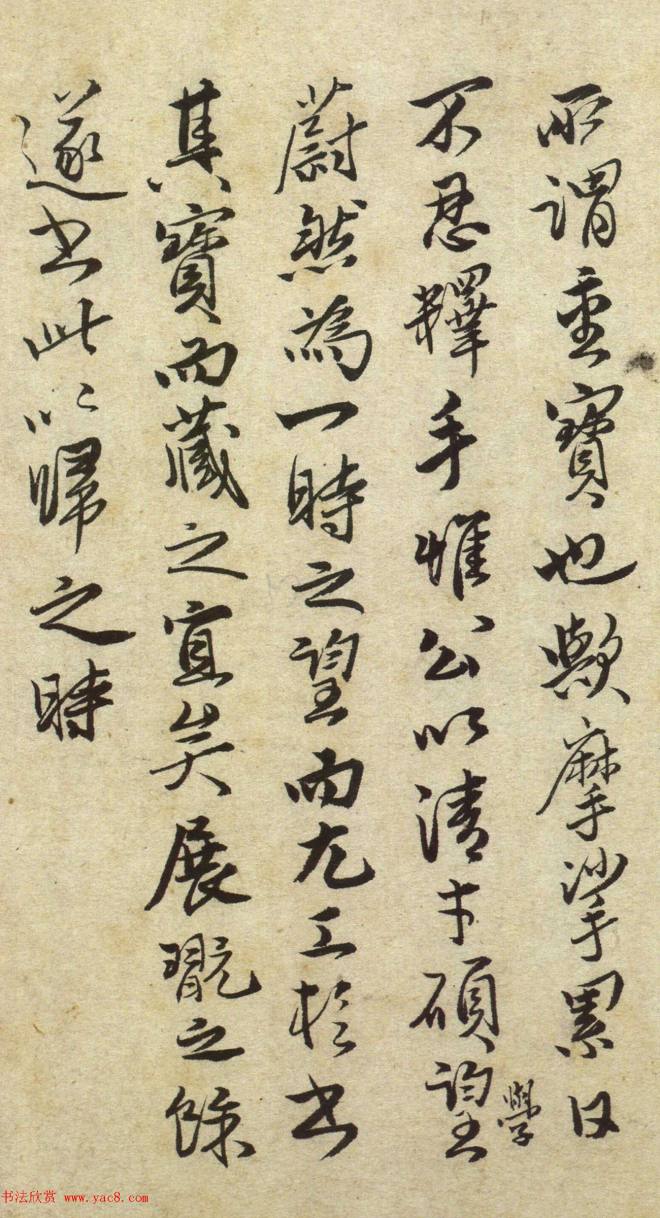 所謂重寶也歟摩挲累日
不忍釋手惟公以清才碩望
學
蔚然為一時之望而尤工於書
其寶而藏之宜矣展翫之餘
遂書此以歸之時
书法欣赏 www.yac8.com